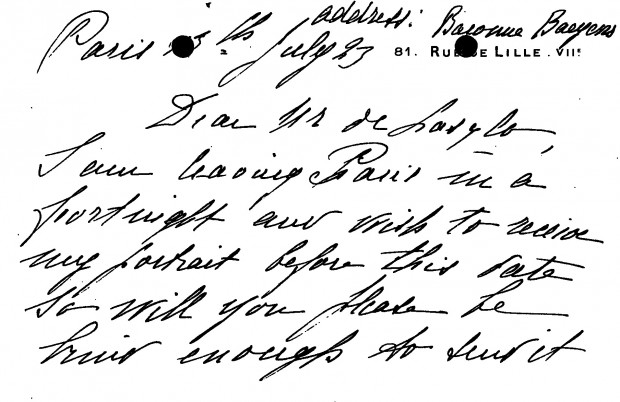 address: Baronne Baeyens
Paris th July 23
81. RUE DE LILLE. VIIe
Dear Mr de Laszlo,
I am leaving Paris in a
fortnight and wish to receive
my portrait before this date
So will you please be
kind enough to send it